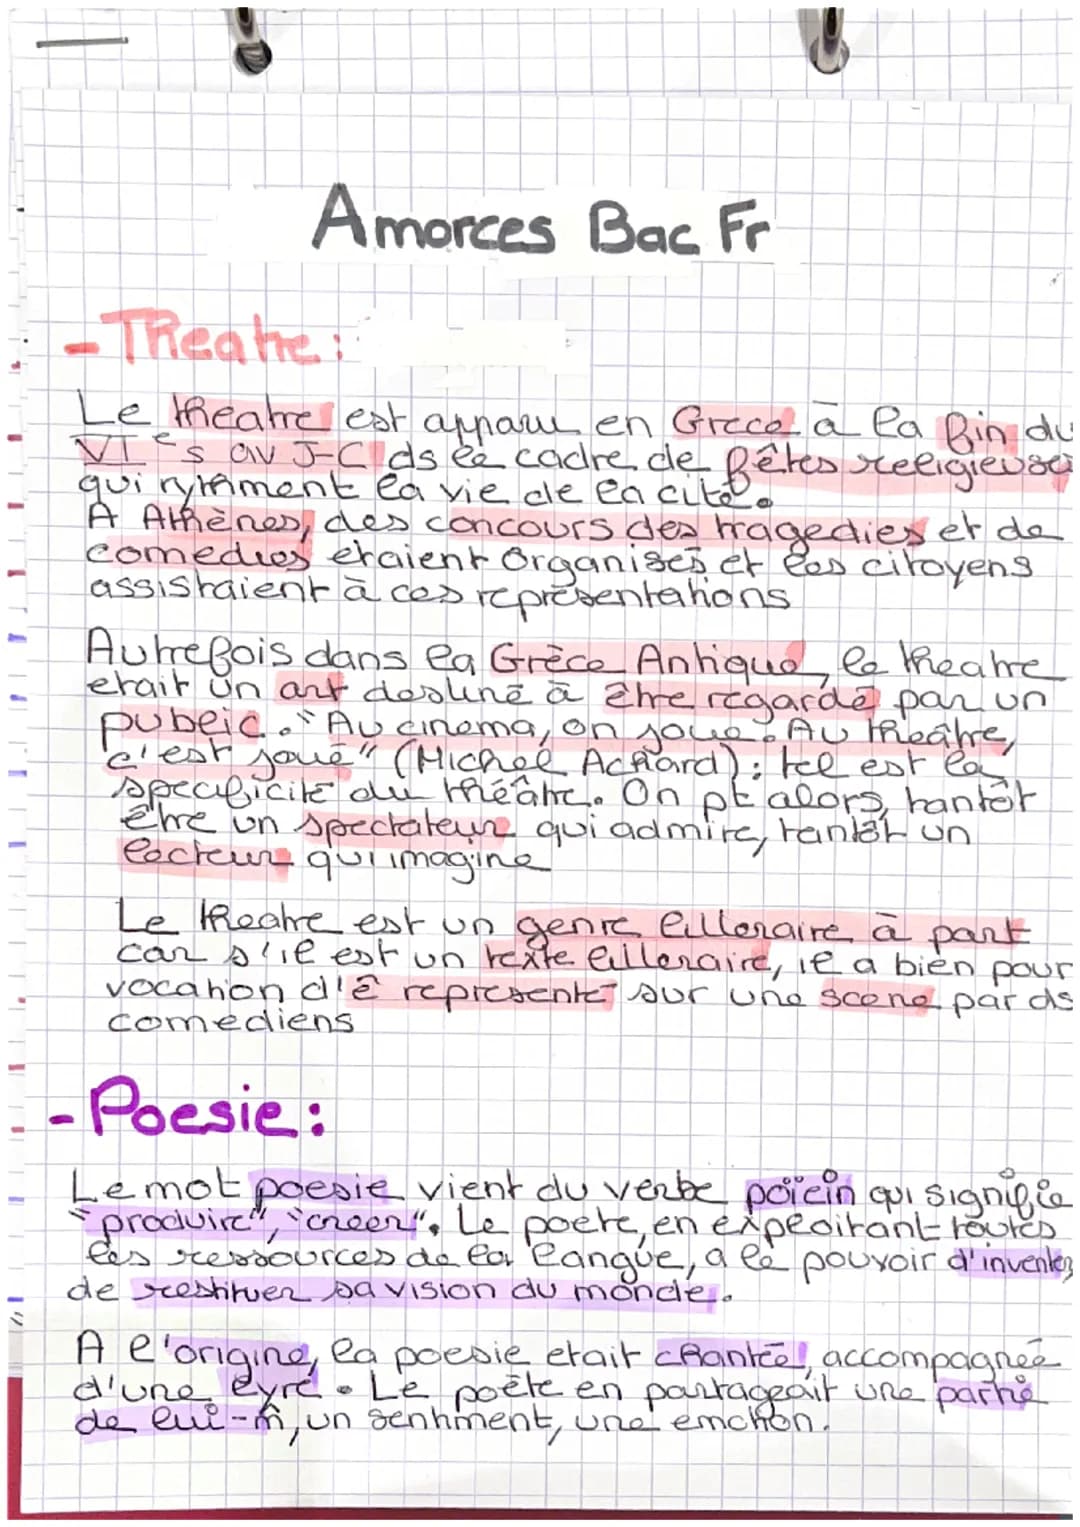 Amorces Bac Fr
- Theatre :
Le theatre est apparu en Grece à la fin du
VIe s av J-C ds le cadre de fêtes religieuses
qui rythment la vie de la cité.
A Athènes, des concours des tragedies et de
comedies etaient organisés et les citoyens
assistaient à ces représentations
Autrefois dans la Grèce Antique, le theatre
etait un art destiné à être regardé par un
public. "Au cinema, on joue. Au théâtre,
c'est joué" (Michel Achard) : tel est la
specificité du théâtre. On pt alors, tantôt
être un spectateur qui admire, tantôt un
lecteur qui imagine
Le theatre est un genre litteraire à part
car s'il est un texte litteraire, il a bien pour
vocation d'ê representé sur une scene par ds
comediens
- Poesie :
Le mot poesie vient du verbe poïein qui signifie
"produire", "creer". Le poete, en expoitant toutes
les ressources de la langue, a le pouvoir d'inventer
de restituer sa vision du monde.
A l'origine, la poesie etait chantée, accompagnée
d'une lyre. Le poète en partageait une partie
de lui-m̂, un sentiment, une emotion.